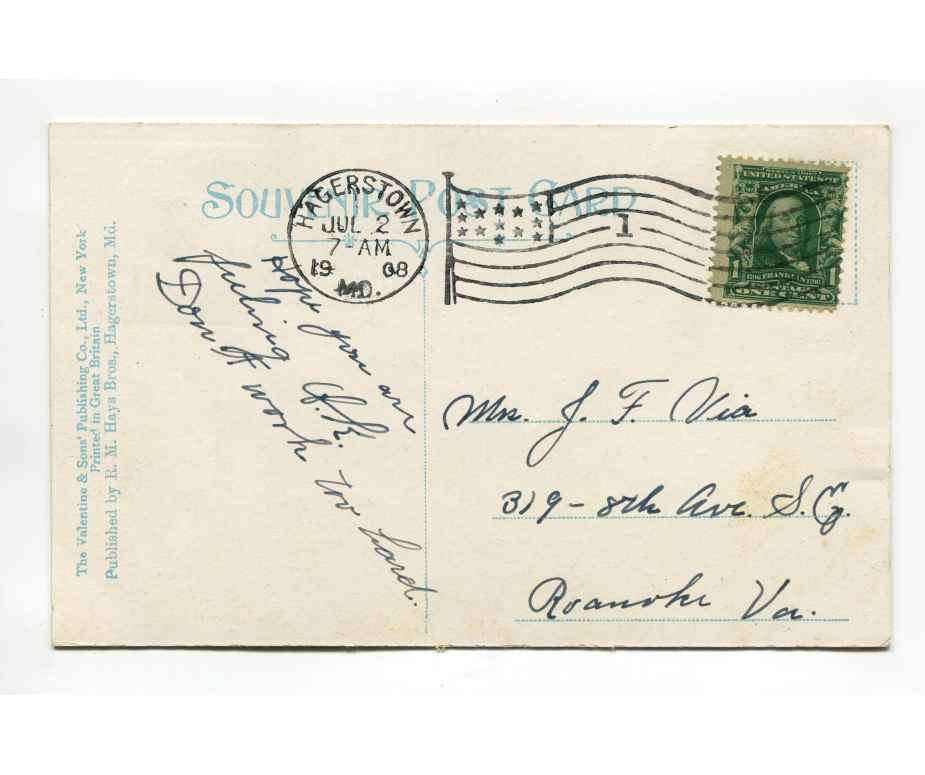 SOUVENIR POST CARD
HAGERSTOWN
JUL 2
7 AM
19 08
MD.
1
UNITED STATES OF
AMERICA
1 FRANKLIN 1
ONE CENT
The Valentine & Sons' Publishing Co., Ltd., New York
Printed in Great Britain
Published by R. M. Hays Bros., Hagerstown, Md.
Hope you are
feeling O.K.
Don't work too hard.
Mrs. J. F. Via
319-8th Ave. S.E.
Roanoke Va.